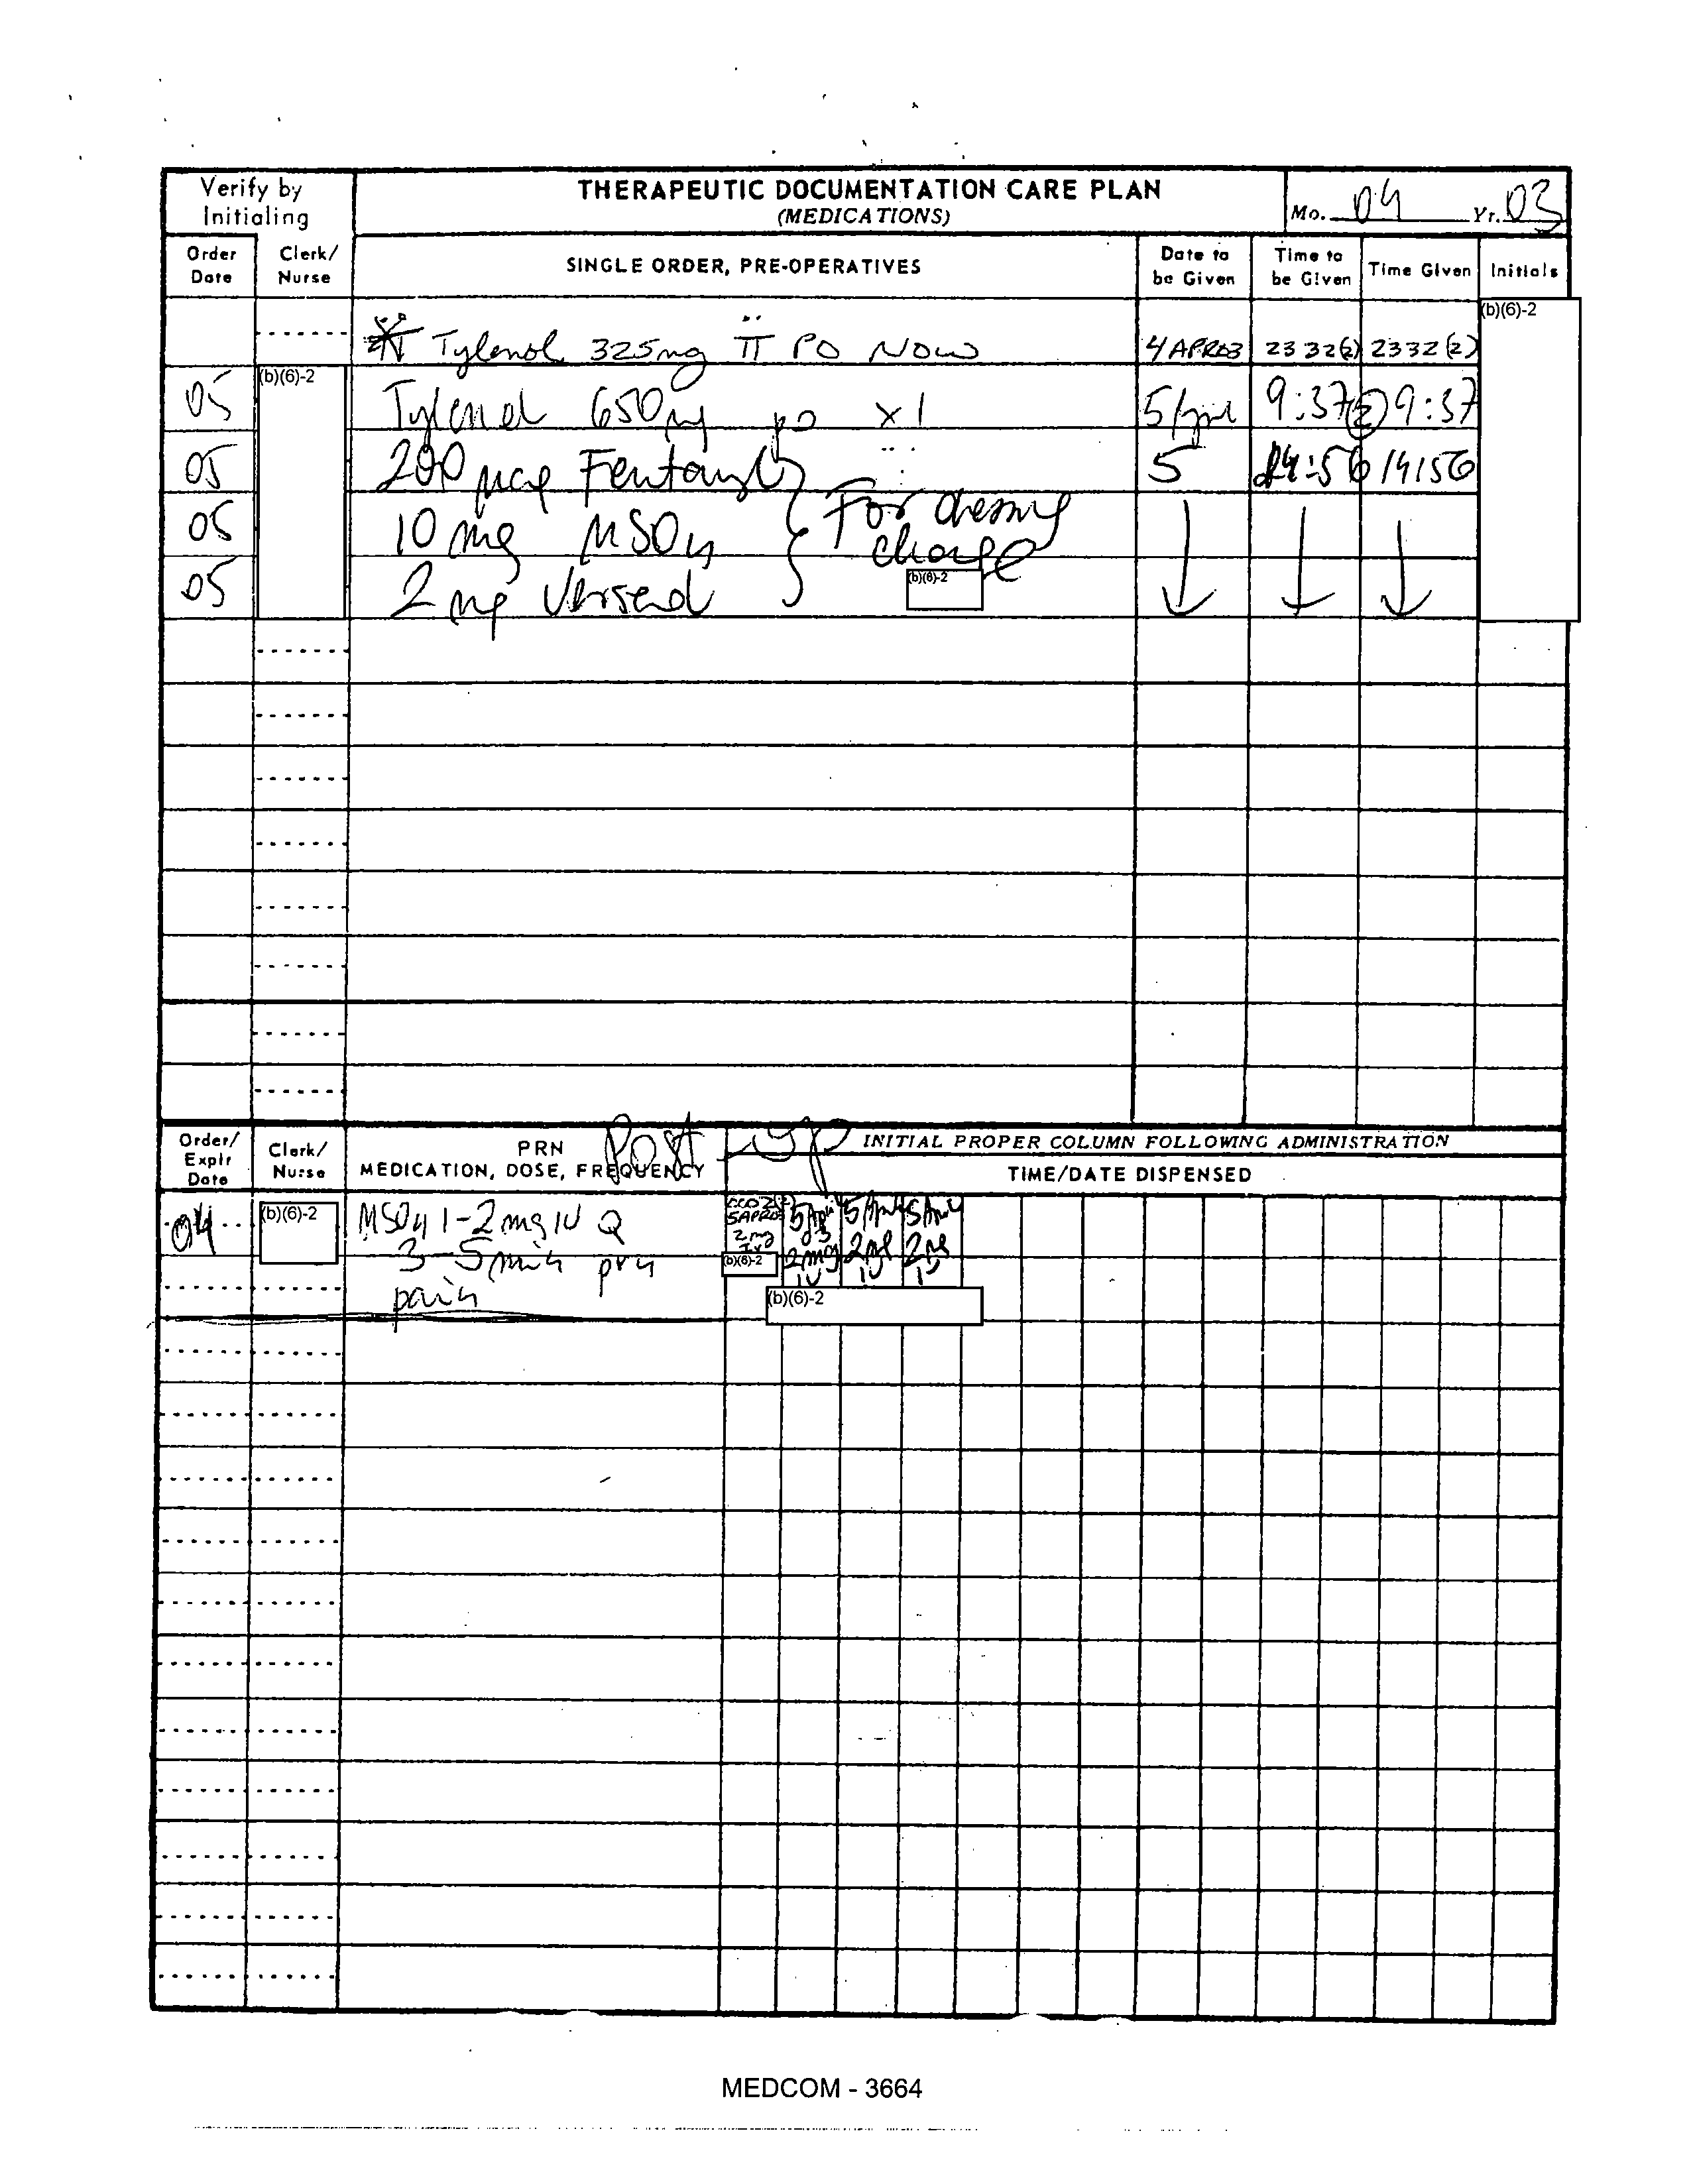 Verify by Initialing
THERAPEUTIC DOCUMENTATION CARE PLAN
(MEDICATIONS)
Mo. 04 Yr. 03
Order Date
Clerk/ Nurse
SINGLE ORDER, PRE-OPERATIVES
Date to be Given
Time to be Given
Time Given
Initials
(b)(6)-2
Tylenol 325mg II PO NOW 4APR03 2332(z) 2332(z)
(b)(6)-2
05 Tylenol 650mg po x1 5 April 9:37 (z) 9:37
05 200 mcg Fentanyl 5 14:56 14:56
05 10 mg MSO4 } For dressing change
05 2 mg Versed
(b)(6)-2
Order/ Expir Date
Clerk/ Nurse
PRN
MEDICATION, DOSE, FREQUENCY
Post
INITIAL PROPER COLUMN FOLLOWING ADMINISTRATION
TIME/DATE DISPENSED
04 (b)(6)-2 MSO4 1-2 mg IV Q
3-5 min prn
pain
5APR03 2mg IV
5 Apr 03 2mg IV
5 April 2mg IV
5 April 2mg IV
(b)(6)-2
(b)(6)-2
MEDCOM - 3664